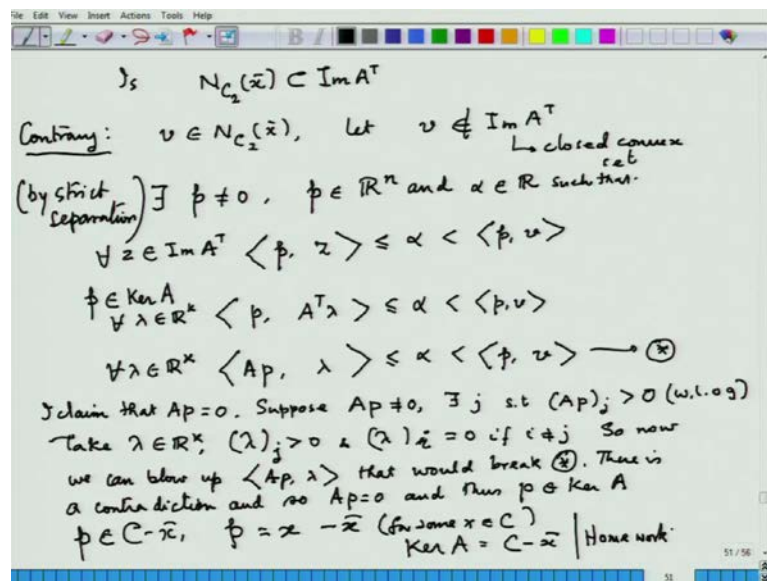 File Edit View Insert Actions Tools Help
Is N_{C_2}(x̄) ⊂ Im A^T
Contrary: v ∈ N_{C_2}(x̄), let v ∉ Im A^T
↳ closed convex
set
(by strict
separation) ∃ p ≠ 0, p ∈ ℝ^n and α ∈ ℝ such that.
∀ z ∈ Im A^T ⟨p, z⟩ ≤ α < ⟨p, v⟩
p ∈ Ker A
∀ λ ∈ ℝ^k ⟨p, A^T λ⟩ ≤ α < ⟨p, v⟩
∀ λ ∈ ℝ^k ⟨Ap, λ⟩ ≤ α < ⟨p, v⟩ → ⊛
I claim that Ap = 0. Suppose Ap ≠ 0, ∃ j s.t (Ap)_j > 0 (w.l.o g)
Take λ ∈ ℝ^k, (λ)_j > 0 & (λ)_i = 0 if i ≠ j So now
we can blow up ⟨Ap, λ⟩ that would break ⊛. There is
a contradiction and so Ap = 0 and thus p ∈ Ker A
p ∈ C - x̄, p = x - x̄ (for some x ∈ C)
Ker A = C - x̄ | Home work.
51 / 56
51